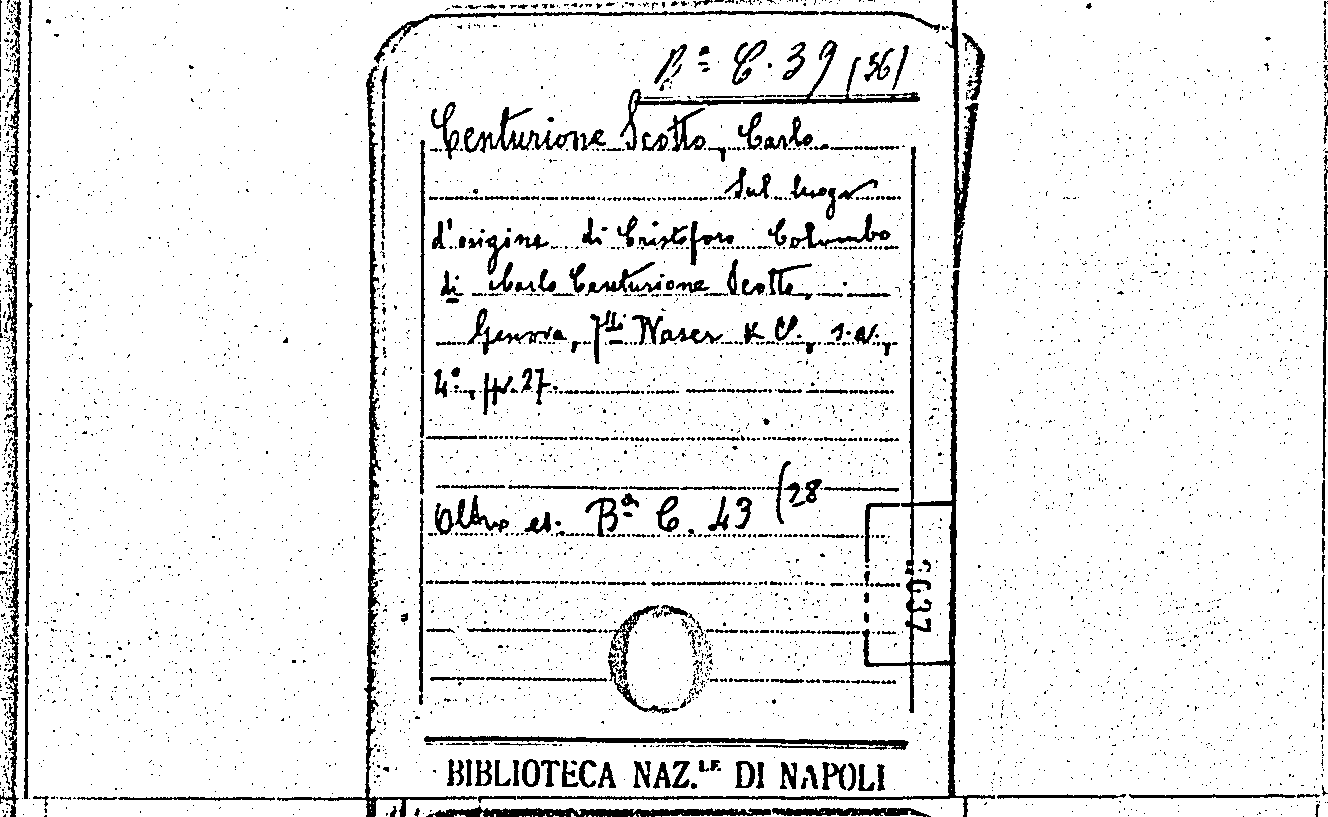 Bª C. 39 (36)
Centurione Scotto, Carlo.
Sul luogo
d'origine di Cristoforo Colombo
di Carlo Centurione Scotto.
Genova, f.lli Waser & C., s.a.,
4°, pp. 27.
Altro es. Bª C. 43 (28
BIBLIOTECA NAZ.LE DI NAPOLI